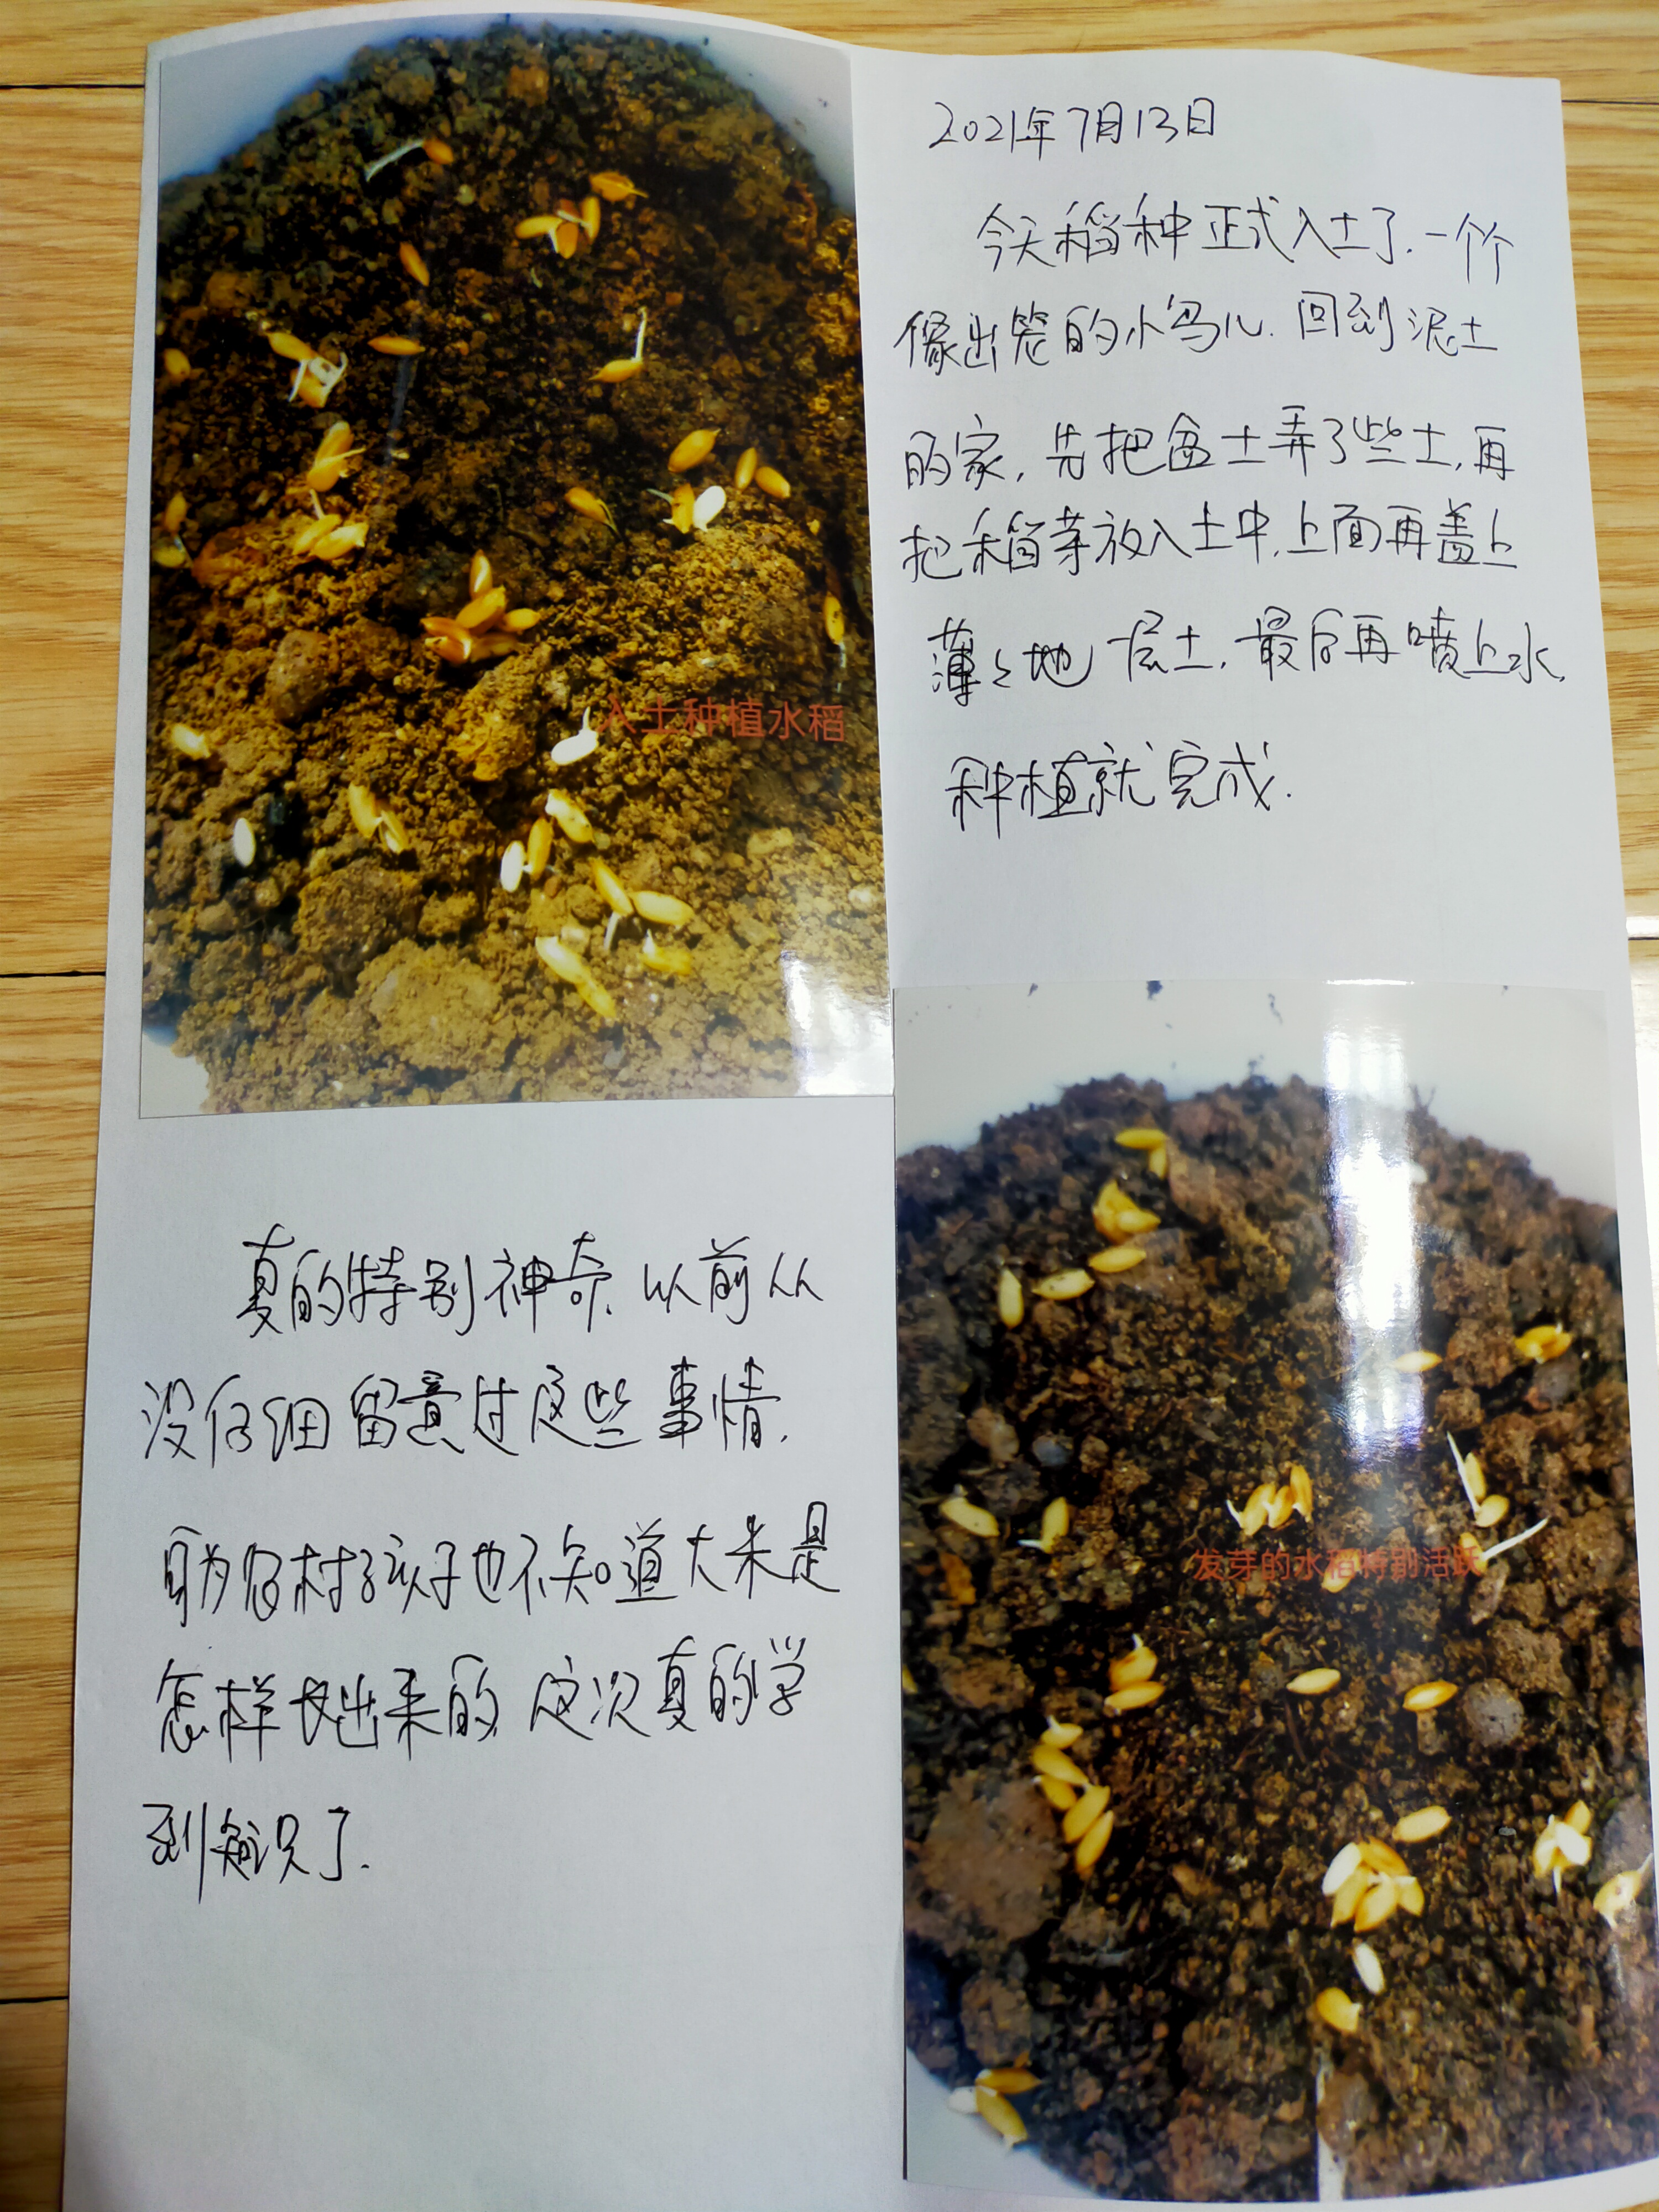 2021年7月13日
今天稻种正式入土了.一个个
像出笼的小鸟儿.回到泥土
的家,先把盆土弄了些土,再
把稻芽放入土中,上面再盖上
薄々地一层土,最后再喷上水,
种植就完成.
入土种植水稻
真的特别神奇,以前从
没仔细留意过这些事情,
身为农村孩子也不知道大米是
怎样长出来的,这次真的学
到知识了.
发芽的水稻特别活跃